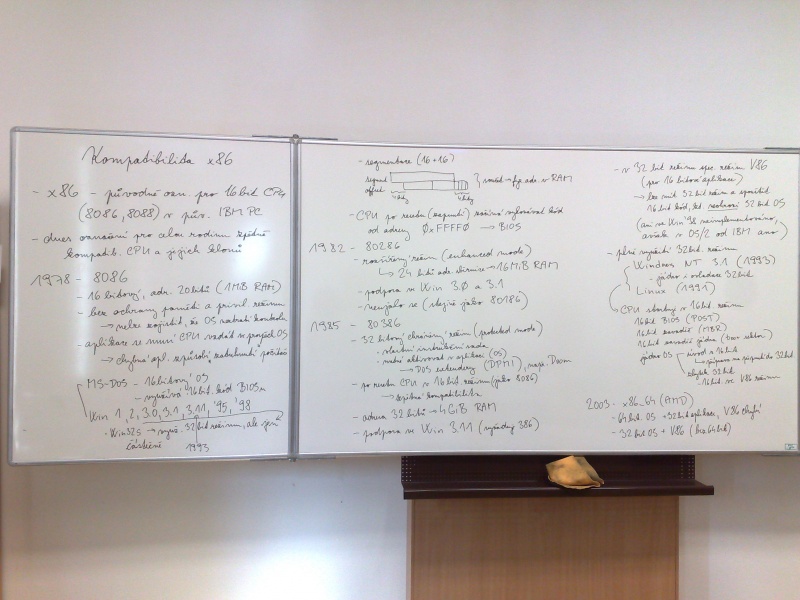 Kompatibilita x86
- x86 - původně ozn. pro 16 bit CPU
(8086, 8088) v pův. IBM PC
- dnes označení pro celou rodinu zpětně
kompatib. CPU a jejich klonů
1978 - 8086
- 16 bitový, adr. 20 bitů (1MB RAM)
- bez ochrany paměti a privil. režimu
→ nelze zajistit, že OS neztratí kontrolu
- aplikace se musí CPU vzdát ve prospěch OS
→ chybná apl. způsobí zatuhnutí počítače
MS-DOS - 16 bitový OS
- využívá 16 bit. kód BIOSu
Win 1, 2, 3.0, 3.1, 3.11, '95, '98
• Win32s → využ. 32 bit režimu, ale
částečně 1993
- segmentace (16+16)
segment
offset
4 bity 4 bity
} součet → fyz. adr. v RAM
- CPU po resetu (zapnutí) začíná vykonávat kód
od adresy 0xFFFF0 → BIOS
1982 - 80286
- rozšířený režim (enhanced mode)
↳ 24 bitů adr. sběrnice → 16 MiB RAM
- podpora ve Win 3.0 a 3.1
- nevyužilo se (stejně jako 80186)
1985 - 80386
- 32 bitový chráněný režim (protected mode)
• vlastní instrukční sada
• nutné aktivovat v aplikaci (OS)
→ DOS extendery (DPMI), např. Doom
- po resetu CPU v 16 bit. režimu (jako 8086)
→ zpětná kompatibilita
- adresa 32 bitů → 4 GiB RAM
- podpora ve Win 3.11 (vyžaduje 386)
- v 32 bit režimu spec. režim V86
(pro 16 bitové aplikace)
→ lze mít 32 bit režim a spouštět
16 bit kód, též 32 bit OS
(ani ve Win '98 neimplementováno,
avšak v OS/2 od IBM ano)
- plné využití 32 bit. režimu
Windows NT 3.1 (1993)
- jádro i ovladače 32 bit
Linux (1991)
→ CPU startuje v 16 bit. režimu
16 bit BIOS (POST)
16 bit zavaděč (MBR)
16 bit zavaděč jádra (boot sektor)
jádro OS úvod v 16 bit
→ příprava na přepnutí do 32 bit
zbytek 32 bit
- 16 bit ve V86 režimu
2003 - x86_64 (AMD)
- 64 bit. OS + 32 bit aplikace, V86 chybí
- 32 bit OS + V86 (bez 64 bit)